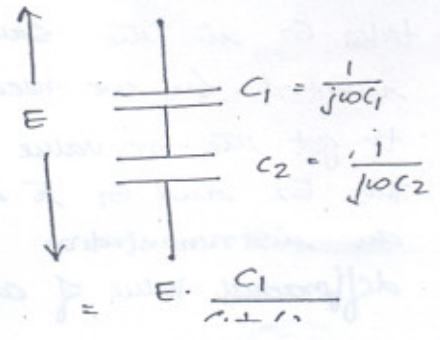 E
C1 = 1/jωC1
C2 = 1/jωC2
= E. C1/C1+C2